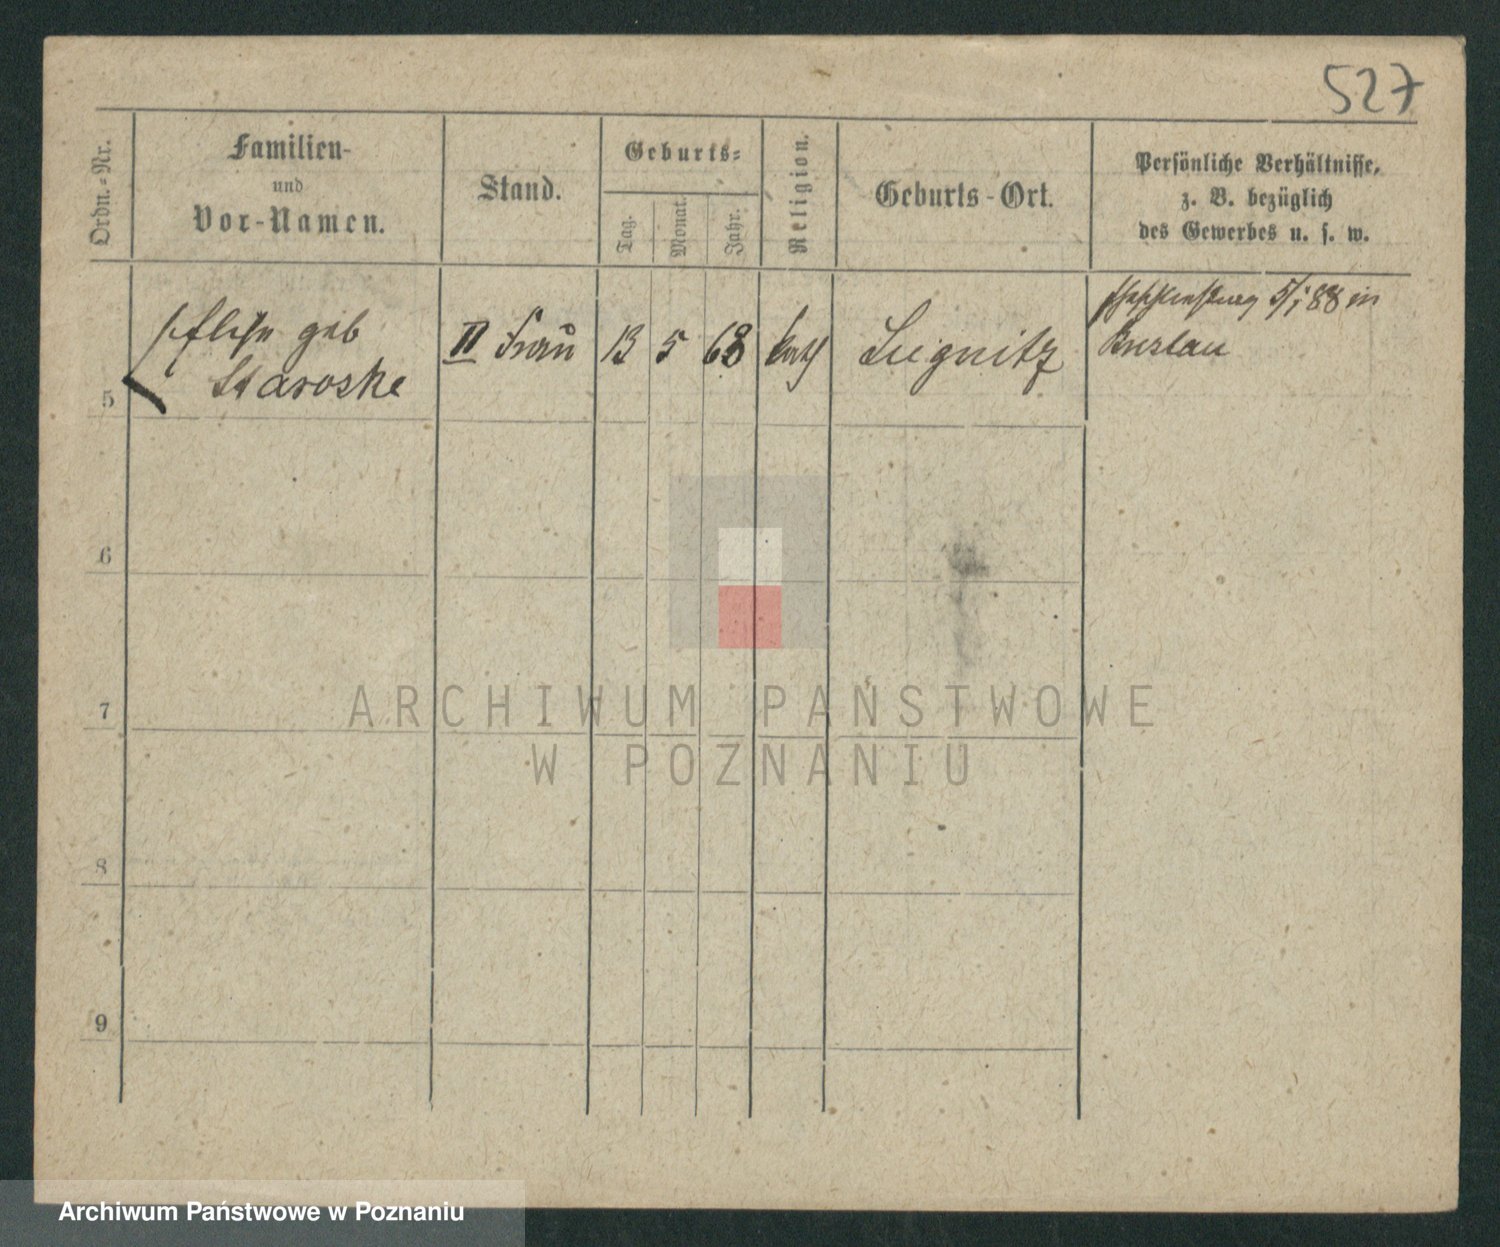 527
Ordn.-Nr.
Familien-
und
Vor-Namen.
Stand.
Geburts-
Tag.
Monat.
Jahr.
Religion.
Geburts-Ort.
Persönliche Verhältnisse,
z. B. bezüglich
des Gewerbes u. s. w.
geb
Staroske
II Frau
13
5
68
kath
Liegnitz
5/1 88 in
Breslau
5
6
7
8
9
ARCHIWUM PAŃSTWOWE
W POZNANIU
Archiwum Państwowe w Poznaniu